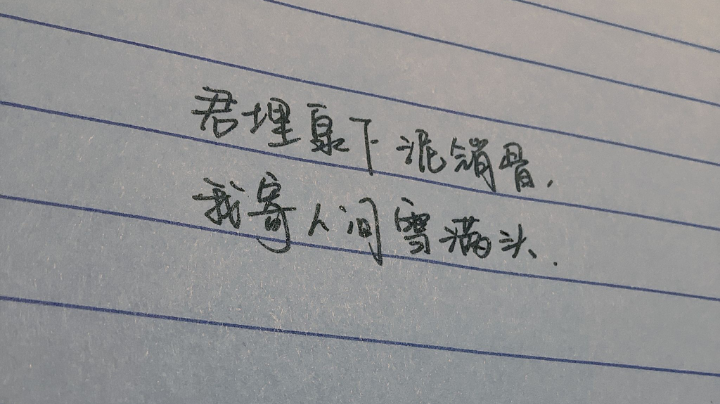 君埋泉下泥销骨,
我寄人间雪满头.